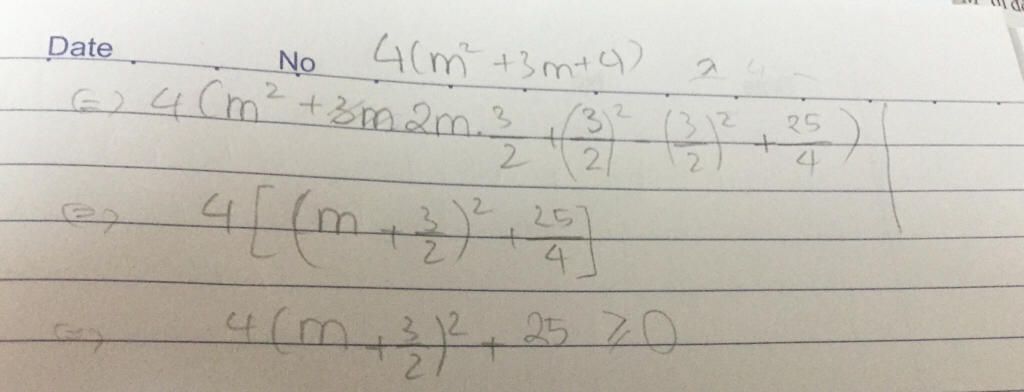 Date No 4(m² + 3m + 4)
⇔ 4(m² + 2m.3/2 + (3/2)² - (3/2)² + 25/4)
⇔ 4[(m + 3/2)² + 25/4]
⇔ 4(m + 3/2)² + 25 ⩾ 0